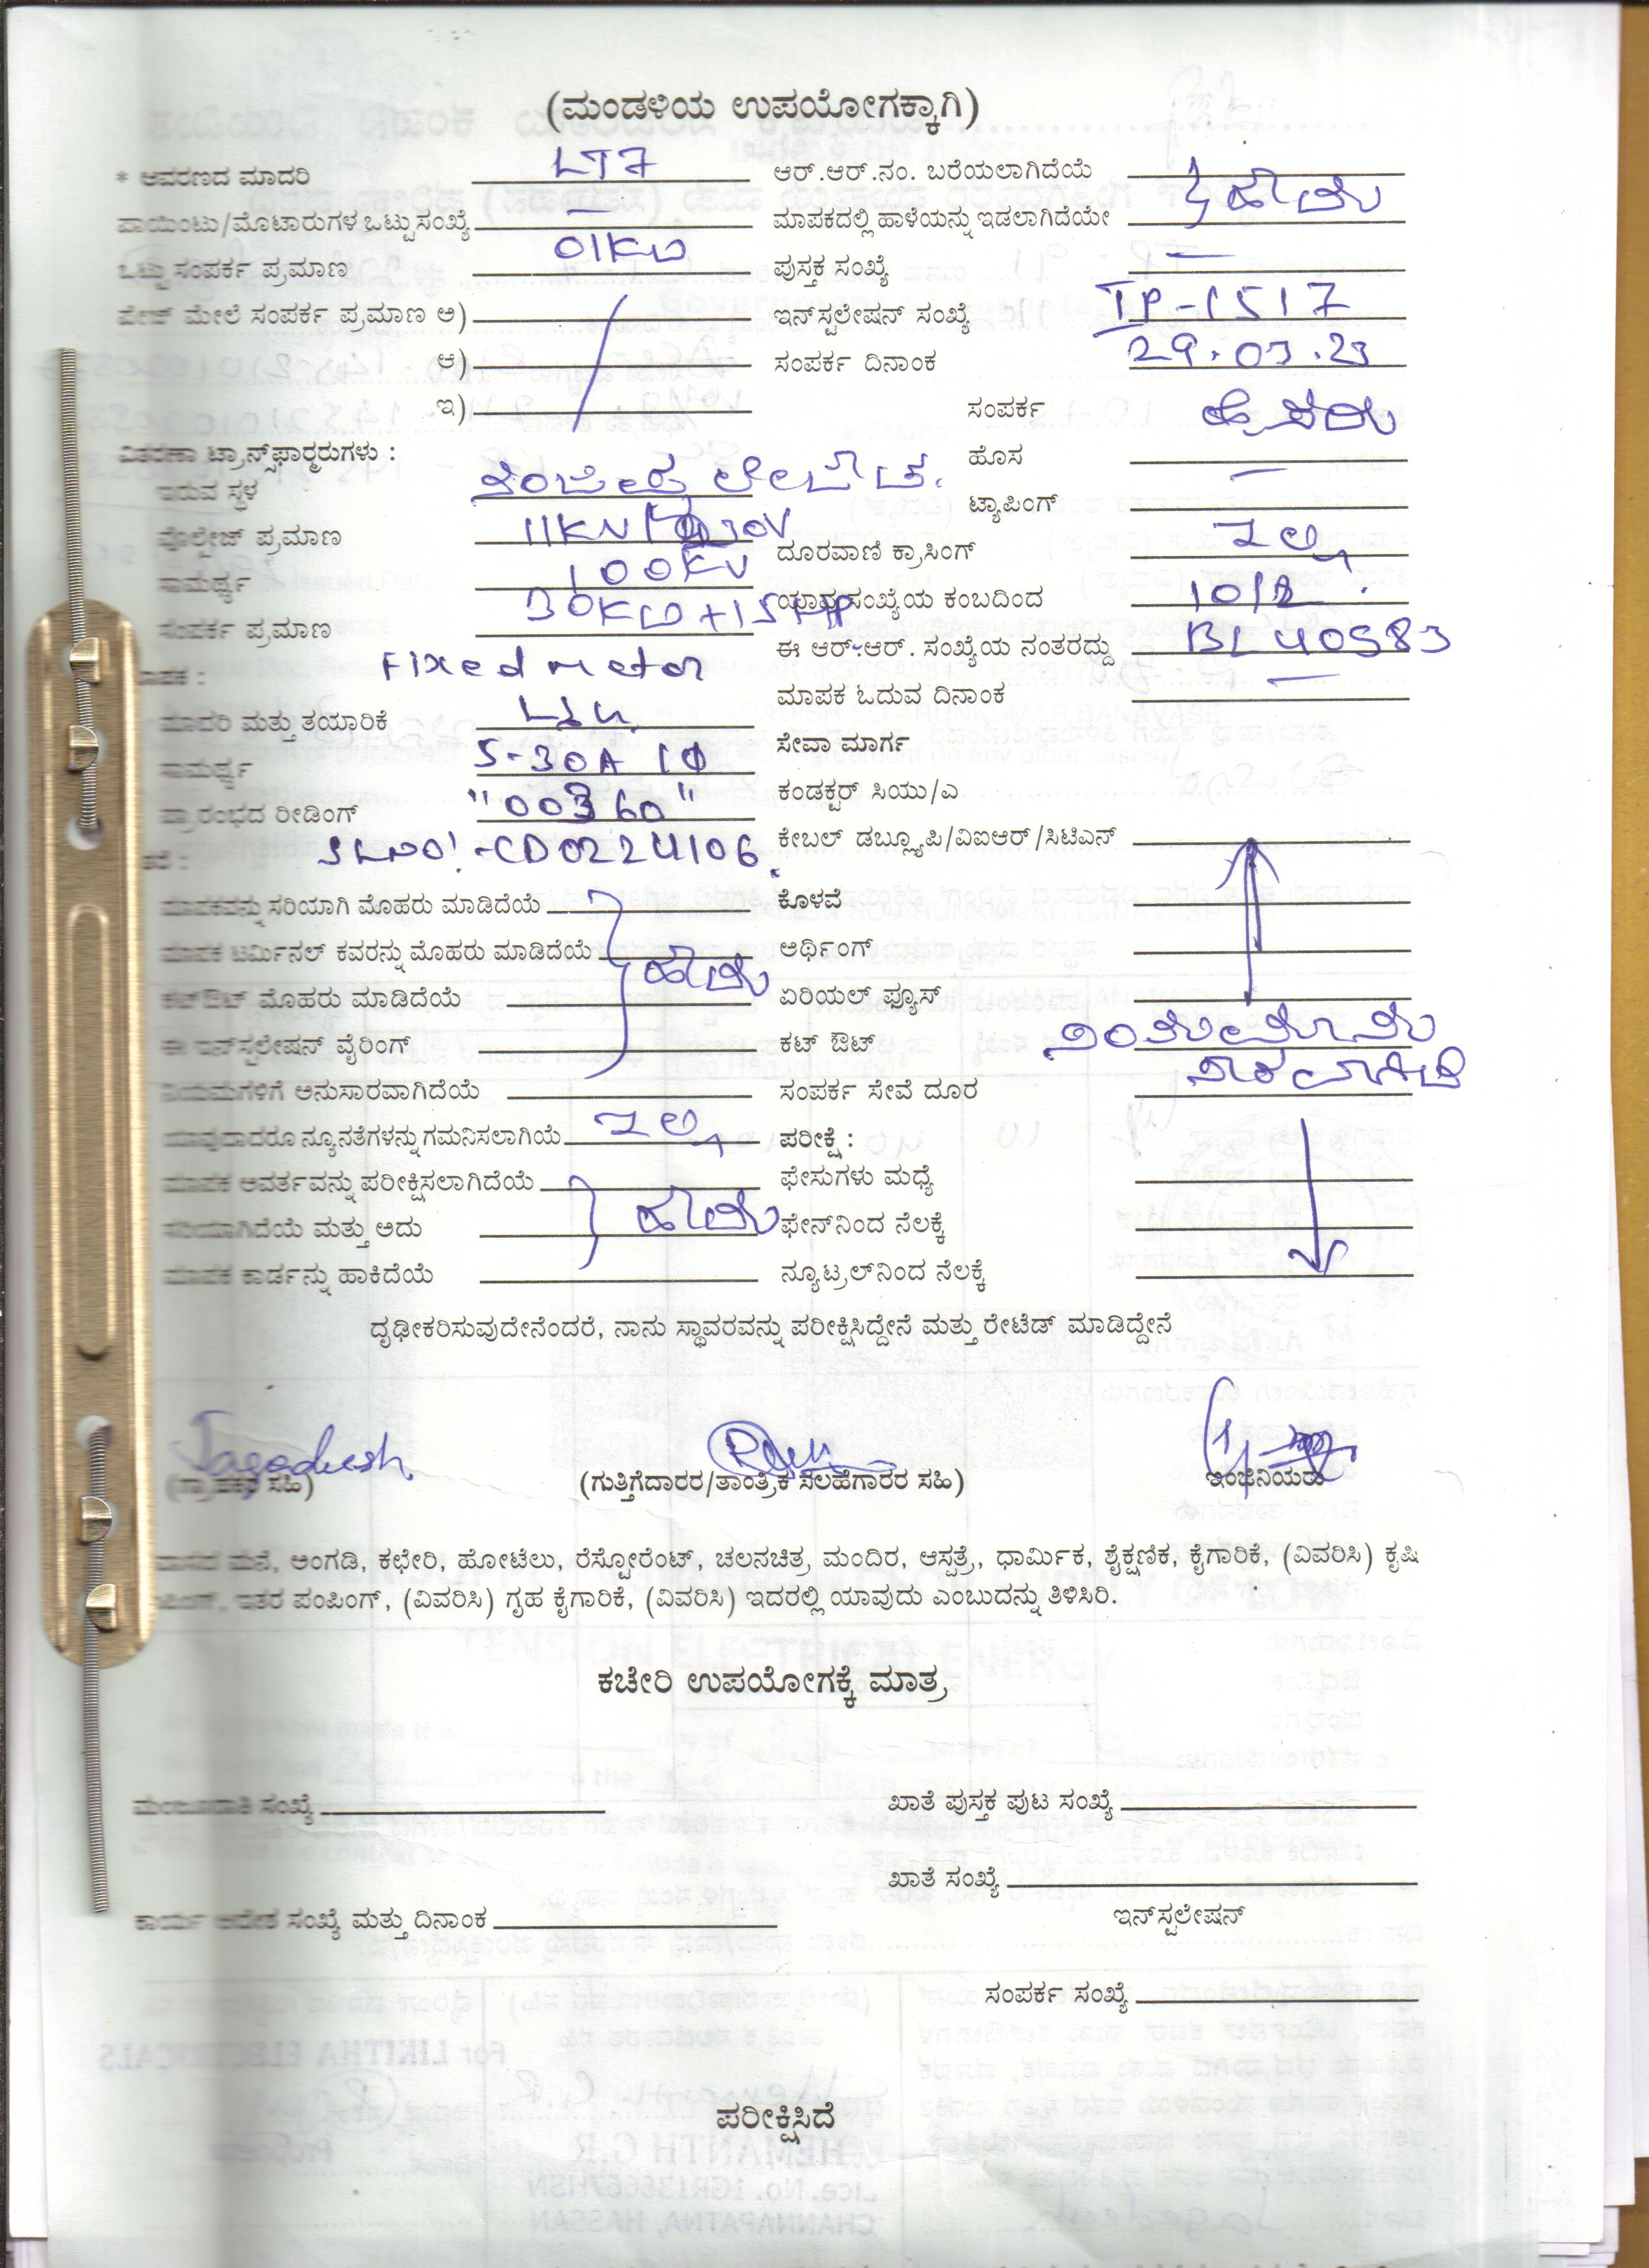 (ಮಂಡಳಿಯ ಉಪಯೋಗಕ್ಕಾಗಿ)
* ಆವರಣದ ಮಾದರಿ LT7 ಆರ್.ಆರ್.ನಂ. ಬರೆಯಲಾಗಿದೆಯೆ
ಪಾಯಿಂಟು/ಮೊಟಾರುಗಳ ಒಟ್ಟುಸಂಖ್ಯೆ — ಮಾಪಕದಲ್ಲಿ ಹಾಳೆಯನ್ನು ಇಡಲಾಗಿದೆಯೇ ಹೌದು
ಒಟ್ಟು ಸಂಪರ್ಕ ಪ್ರಮಾಣ 01KW ಪುಸ್ತಕ ಸಂಖ್ಯೆ —
ಪೇಜ್ ಮೇಲೆ ಸಂಪರ್ಕ ಪ್ರಮಾಣ ಅ) ಇನ್‌ಸ್ಟಲೇಷನ್ ಸಂಖ್ಯೆ TP-1517
ಆ) ಸಂಪರ್ಕ ದಿನಾಂಕ 29.03.23
ಇ) ಸಂಪರ್ಕ
ವಿತರಣಾ ಟ್ರಾನ್ಸ್‌ಫಾರ್ಮರುಗಳು : ಹೊಸ —
ಇರುವ ಸ್ಥಳ ಟ್ಯಾಪಿಂಗ್
ವೊಲ್ಟೇಜ್ ಪ್ರಮಾಣ 11KV/ ದೂರವಾಣಿ ಕ್ರಾಸಿಂಗ್ ಇಲ್ಲ
ಸಾಮರ್ಥ್ಯ 100KV ಯಾವ ಸಂಖ್ಯೆಯ ಕಂಬದಿಂದ
ಸಂಪರ್ಕ ಪ್ರಮಾಣ 30KW+15HP ಈ ಆರ್.ಆರ್. ಸಂಖ್ಯೆಯ ನಂತರದ್ದು BL40583
ಮಾಪಕ : Fixed meter ಮಾಪಕ ಓದುವ ದಿನಾಂಕ —
ಮಾದರಿ ಮತ್ತು ತಯಾರಿಕೆ ಸೇವಾ ಮಾರ್ಗ
ಸಾಮರ್ಥ್ಯ 5-30A 1Φ ಕಂಡಕ್ಟರ್ ಸಿಯು/ಎ
ಪ್ರಾರಂಭದ ರೀಡಿಂಗ್ "00360" ಕೇಬಲ್ ಡಬ್ಲ್ಯೂಪಿ/ವಿಐಆರ್/ಸಿಟಿಎಸ್
SLNO:-CD0224106
ಮಾಪಕವನ್ನು ಸರಿಯಾಗಿ ಮೊಹರು ಮಾಡಿದೆಯೆ ಕೊಳವೆ
ಮಾಪಕ ಟರ್ಮಿನಲ್ ಕವರನ್ನು ಮೊಹರು ಮಾಡಿದೆಯೆ ಹೌದು ಅರ್ಥಿಂಗ್
ಕಟ್‌ಔಟ್ ಮೊಹರು ಮಾಡಿದೆಯೆ ಏರಿಯಲ್ ಫ್ಯೂಸ್
ಈ ಇನ್‌ಸ್ಟಲೇಶನ್ ವೈರಿಂಗ್ ಕಟ್ ಔಟ್
ನಿಯಮಗಳಿಗೆ ಅನುಸಾರವಾಗಿದೆಯೆ ಸಂಪರ್ಕ ಸೇವೆ ದೂರ
ಯಾವುದಾದರೂ ನ್ಯೂನತೆಗಳನ್ನು ಗಮನಿಸಲಾಗಿಯೆ ಇಲ್ಲ ಪರೀಕ್ಷೆ :
ಮಾಪಕ ಅವರ್ತವನ್ನು ಪರೀಕ್ಷಿಸಲಾಗಿದೆಯೆ ಫೇಸುಗಳು ಮಧ್ಯೆ
ಸರಿಯಾಗಿದೆಯೆ ಮತ್ತು ಅದು ಹೌದು ಫೇಸ್‌ನಿಂದ ನೆಲಕ್ಕೆ
ಮಾಪಕ ಕಾರ್ಡನ್ನು ಹಾಕಿದೆಯೆ ನ್ಯೂಟ್ರಲ್‌ನಿಂದ ನೆಲಕ್ಕೆ
ದೃಢೀಕರಿಸುವುದೇನೆಂದರೆ, ನಾನು ಸ್ಥಾವರವನ್ನು ಪರೀಕ್ಷಿಸಿದ್ದೇನೆ ಮತ್ತು ರೇಟೆಡ್ ಮಾಡಿದ್ದೇನೆ
Jagadeesh
(ಗ್ರಾಹಕರ ಸಹಿ) (ಗುತ್ತಿಗೆದಾರರ/ತಾಂತ್ರಿಕ ಸಲಹೆಗಾರರ ಸಹಿ) ಇಂಜಿನಿಯರು
ವಾಸದ ಮನೆ, ಅಂಗಡಿ, ಕಛೇರಿ, ಹೋಟೆಲು, ರೆಸ್ಟೋರೆಂಟ್, ಚಲನಚಿತ್ರ ಮಂದಿರ, ಆಸ್ಪತ್ರೆ, ಧಾರ್ಮಿಕ, ಶೈಕ್ಷಣಿಕ, ಕೈಗಾರಿಕೆ, (ವಿವರಿಸಿ) ಕೃಷಿ
ಪಂಪಿಂಗ್, ಇತರ ಪಂಪಿಂಗ್, (ವಿವರಿಸಿ) ಗೃಹ ಕೈಗಾರಿಕೆ, (ವಿವರಿಸಿ) ಇದರಲ್ಲಿ ಯಾವುದು ಎಂಬುದನ್ನು ತಿಳಿಸಿರಿ.
ಕಚೇರಿ ಉಪಯೋಗಕ್ಕೆ ಮಾತ್ರ
ಮಂಜೂರಾತಿ ಸಂಖ್ಯೆ ಖಾತೆ ಪುಸ್ತಕ ಪುಟ ಸಂಖ್ಯೆ
ಖಾತೆ ಸಂಖ್ಯೆ
ಕಾರ್ಯ ಆದೇಶ ಸಂಖ್ಯೆ ಮತ್ತು ದಿನಾಂಕ ಇನ್‌ಸ್ಟಲೇಷನ್
ಸಂಪರ್ಕ ಸಂಖ್ಯೆ
ಪರೀಕ್ಷಿಸಿದೆ